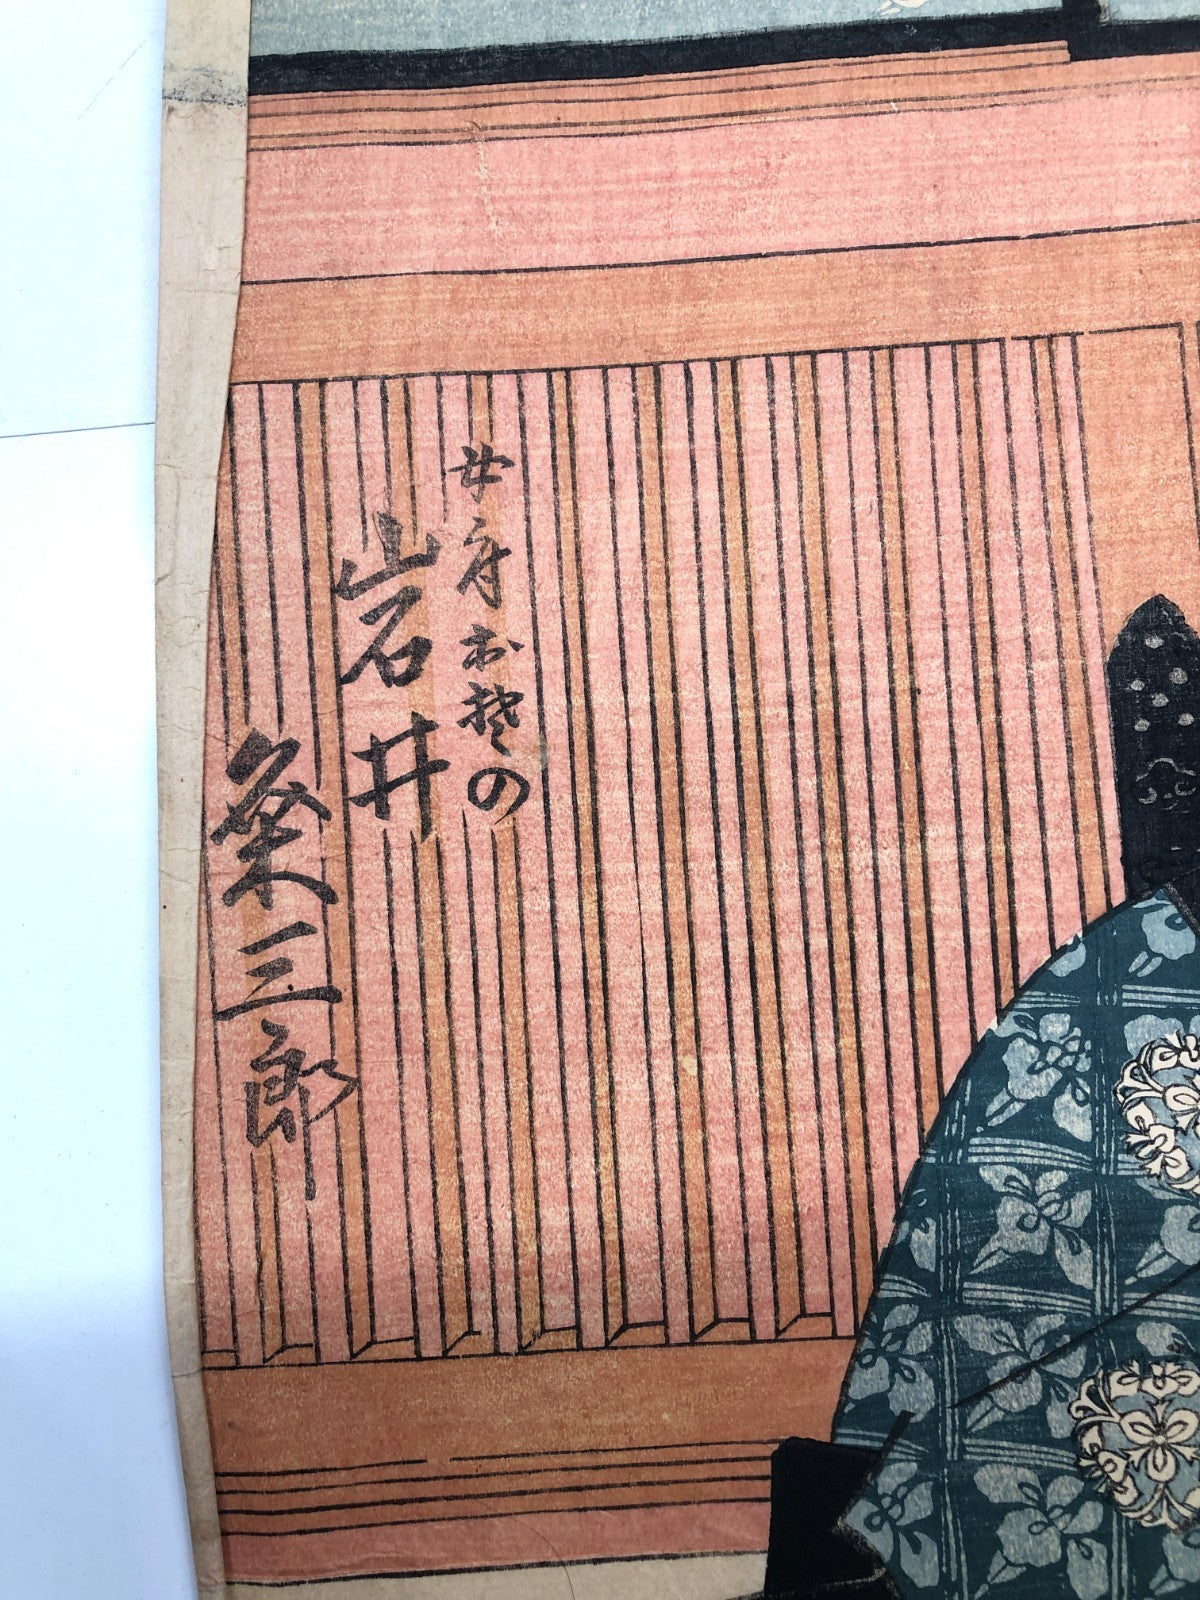 女房おその
岩井
粂三郎